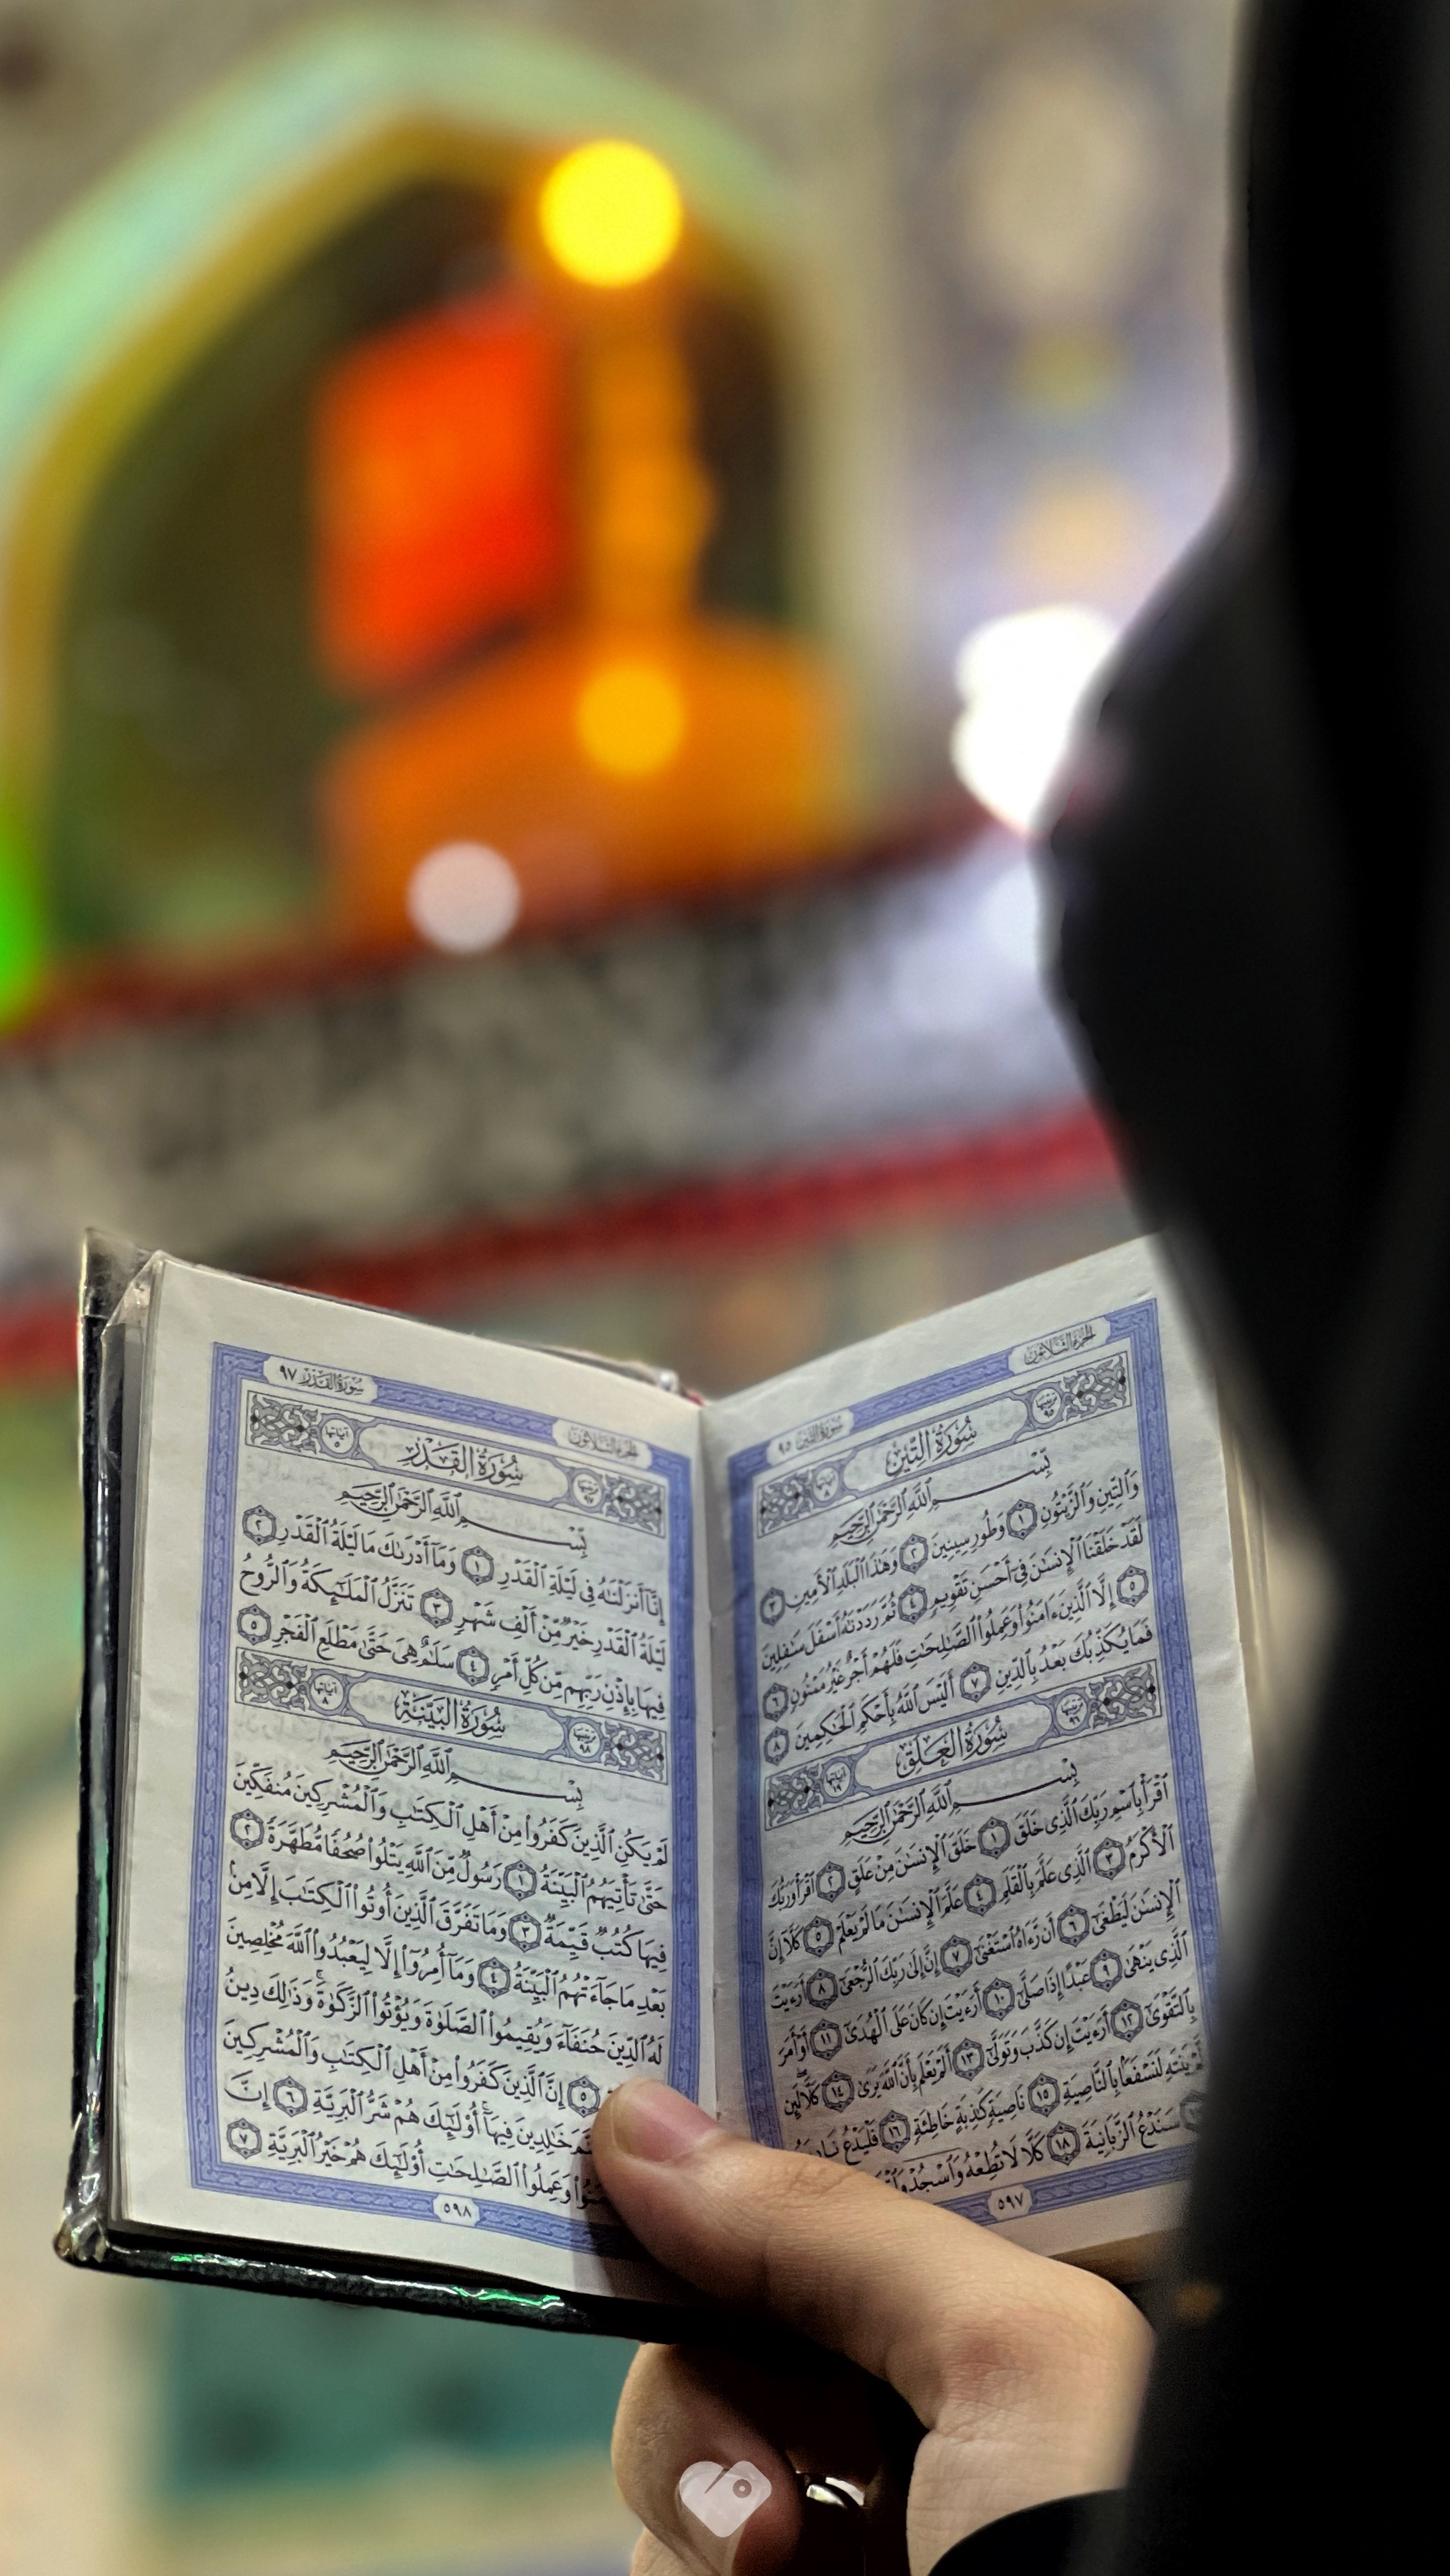 الجزء الثلاثون
سورة التين ٩٥
سُورَةُ التِّينِ
ترتيبها ٩٥
آياتها ٨
بِسْمِ ٱللَّهِ ٱلرَّحْمَٰنِ ٱلرَّحِيمِ
وَٱلتِّينِ وَٱلزَّيْتُونِ ١ وَطُورِ سِينِينَ ٢ وَهَٰذَا ٱلْبَلَدِ ٱلْأَمِينِ ٣
لَقَدْ خَلَقْنَا ٱلْإِنسَٰنَ فِىٓ أَحْسَنِ تَقْوِيمٍ ٤ ثُمَّ رَدَدْنَٰهُ أَسْفَلَ سَٰفِلِينَ
٥ إِلَّا ٱلَّذِينَ ءَامَنُوا۟ وَعَمِلُوا۟ ٱلصَّٰلِحَٰتِ فَلَهُمْ أَجْرٌ غَيْرُ مَمْنُونٍ ٦
فَمَا يُكَذِّبُكَ بَعْدُ بِٱلدِّينِ ٧ أَلَيْسَ ٱللَّهُ بِأَحْكَمِ ٱلْحَٰكِمِينَ ٨
سُورَةُ العَلَقِ
ترتيبها ٩٦
آياتها ١٩
بِسْمِ ٱللَّهِ ٱلرَّحْمَٰنِ ٱلرَّحِيمِ
ٱقْرَأْ بِٱسْمِ رَبِّكَ ٱلَّذِى خَلَقَ ١ خَلَقَ ٱلْإِنسَٰنَ مِنْ عَلَقٍ ٢ ٱقْرَأْ وَرَبُّكَ
ٱلْأَكْرَمُ ٣ ٱلَّذِى عَلَّمَ بِٱلْقَلَمِ ٤ عَلَّمَ ٱلْإِنسَٰنَ مَا لَمْ يَعْلَمْ ٥ كَلَّآ إِنَّ
ٱلْإِنسَٰنَ لَيَطْغَىٰٓ ٦ أَن رَّءَاهُ ٱسْتَغْنَىٰٓ ٧ إِنَّ إِلَىٰ رَبِّكَ ٱلرُّجْعَىٰٓ ٨ أَرَءَيْتَ
ٱلَّذِى يَنْهَىٰ ٩ عَبْدًا إِذَا صَلَّىٰٓ ١٠ أَرَءَيْتَ إِن كَانَ عَلَى ٱلْهُدَىٰٓ ١١ أَوْ أَمَرَ
بِٱلتَّقْوَىٰٓ ١٢ أَرَءَيْتَ إِن كَذَّبَ وَتَوَلَّىٰٓ ١٣ أَلَمْ يَعْلَم بِأَنَّ ٱللَّهَ يَرَىٰ ١٤ كَلَّا لَئِن
يَنتَهِ لَنَسْفَعًۢا بِٱلنَّاصِيَةِ ١٥ نَاصِيَةٍ كَٰذِبَةٍ خَاطِئَةٍ ١٦ فَلْيَدْعُ
سَنَدْعُ ٱلزَّبَانِيَةَ ١٨ كَلَّا لَا تُطِعْهُ وَٱسْجُدْ
٥٩٧
سورة القدر ٩٧
الجزء الثلاثون
سُورَةُ القَدْرِ
ترتيبها ٩٧
آياتها ٥
بِسْمِ ٱللَّهِ ٱلرَّحْمَٰنِ ٱلرَّحِيمِ
إِنَّآ أَنزَلْنَٰهُ فِى لَيْلَةِ ٱلْقَدْرِ ١ وَمَآ أَدْرَىٰكَ مَا لَيْلَةُ ٱلْقَدْرِ ٢
لَيْلَةُ ٱلْقَدْرِ خَيْرٌ مِّنْ أَلْفِ شَهْرٍ ٣ تَنَزَّلُ ٱلْمَلَٰٓئِكَةُ وَٱلرُّوحُ
فِيهَا بِإِذْنِ رَبِّهِم مِّن كُلِّ أَمْرٍ ٤ سَلَٰمٌ هِىَ حَتَّىٰ مَطْلَعِ ٱلْفَجْرِ ٥
سُورَةُ البَيِّنَةِ
ترتيبها ٩٨
آياتها ٨
بِسْمِ ٱللَّهِ ٱلرَّحْمَٰنِ ٱلرَّحِيمِ
لَمْ يَكُنِ ٱلَّذِينَ كَفَرُوا۟ مِنْ أَهْلِ ٱلْكِتَٰبِ وَٱلْمُشْرِكِينَ مُنفَكِّينَ
حَتَّىٰ تَأْتِيَهُمُ ٱلْبَيِّنَةُ ١ رَسُولٌ مِّنَ ٱللَّهِ يَتْلُوا۟ صُحُفًا مُّطَهَّرَةً ٢
فِيهَا كُتُبٌ قَيِّمَةٌ ٣ وَمَا تَفَرَّقَ ٱلَّذِينَ أُوتُوا۟ ٱلْكِتَٰبَ إِلَّا مِنۢ
بَعْدِ مَا جَآءَتْهُمُ ٱلْبَيِّنَةُ ٤ وَمَآ أُمِرُوٓا۟ إِلَّا لِيَعْبُدُوا۟ ٱللَّهَ مُخْلِصِينَ
لَهُ ٱلدِّينَ حُنَفَآءَ وَيُقِيمُوا۟ ٱلصَّلَوٰةَ وَيُؤْتُوا۟ ٱلزَّكَوٰةَ وَذَٰلِكَ دِينُ
٥ إِنَّ ٱلَّذِينَ كَفَرُوا۟ مِنْ أَهْلِ ٱلْكِتَٰبِ وَٱلْمُشْرِكِينَ
خَٰلِدِينَ فِيهَآ أُو۟لَٰٓئِكَ هُمْ شَرُّ ٱلْبَرِيَّةِ ٦ إِنَّ
وَعَمِلُوا۟ ٱلصَّٰلِحَٰتِ أُو۟لَٰٓئِكَ هُمْ خَيْرُ ٱلْبَرِيَّةِ ٧
٥٩٨